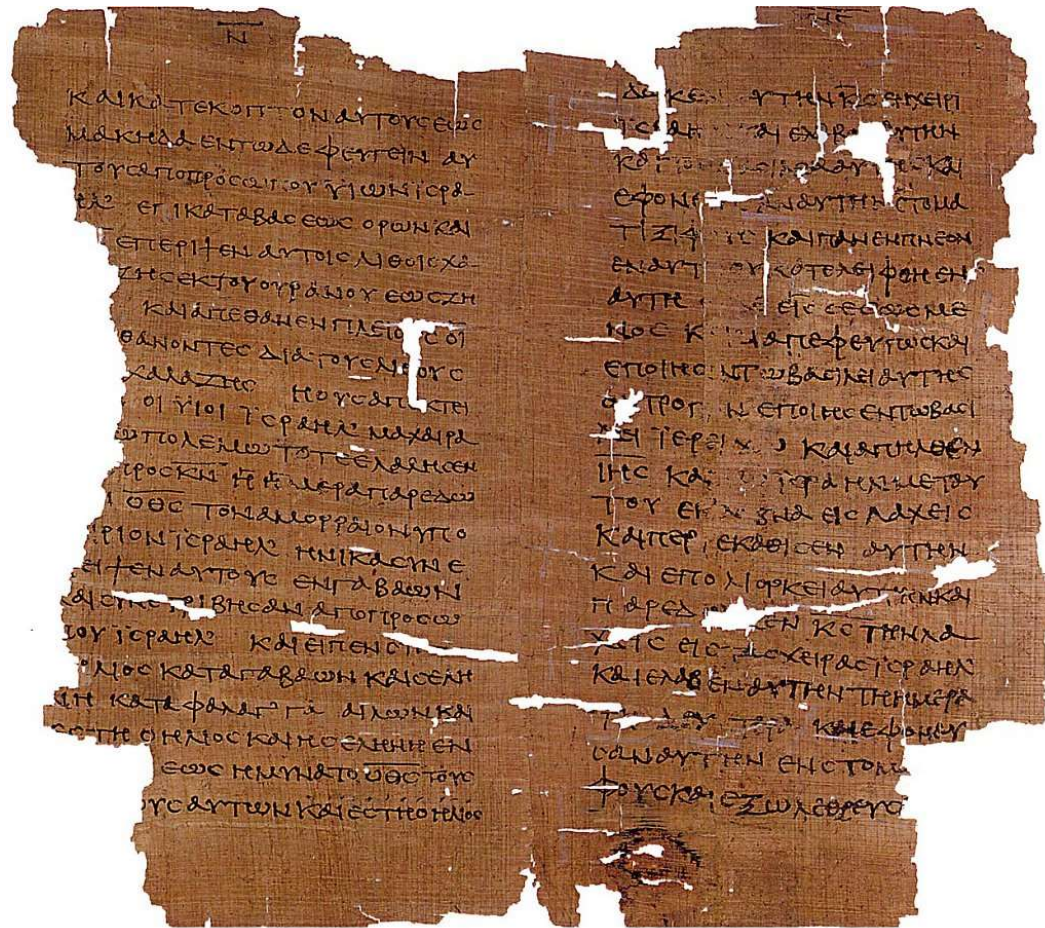 Ν
ΚΑΙΚΑΤΕΚΟΠΤΟΝΑΥΤΟΥϹΕΩϹ
ΜΑΚΗΔΑΕΝΤΩΔΕΦΕΥΓΕΙΝΑΥ
ΤΟΥϹΑΠΟΠΡΟϹΩΠΟΥΥΙΩΝΙϹΡΑ
ΗΛ ΕΠΙΚΑΤΑΒΑϹΕΩϹΟΡΩΝΚΑΙ
ΕΠΕΡΙΨΕΝΑΥΤΟΙϹΛΙΘΟΙϹΧΑ
ΖΗϹΕΚΤΟΥΟΥΡΑΝΟΥΕΩϹΖΗ
ΚΑΙΑΠΕΘΑΝΕΝΠΛΕΙΟΥϹΟΙ
ΘΑΝΟΝΤΕϹΔΙΑΤΟΥϹΛΙΘΟΥϹ
ΧΑΛΑΖΗϹ ΗΟΥϹΑΠΕΚΤΕΙ
ΟΙΥΙΟΙΙϹΡΑΗΛΜΑΧΑΙΡΑ
ΩΠΟΛΕΜΩΤΟΤΕΕΛΑΛΗϹΕΝ
ΠΡΟϹΚΝ Η ΗΜΕΡΑΠΑΡΕΔΩ
ΟΘϹΤΟΝΑΜΟΡΡΑΙΟΝΥΠΟ
ΡΙΟΝΙϹΡΑΗΛ ΗΝΙΚΑϹΥΝΕ
ΕΙΨΕΝΑΥΤΟΥϹΕΝΓΑΒΑΩΝ
ΚΑΙϹΥΝΕΤΡΙΒΗϹΑΝΑΠΟΠΡΟϹΩ
ΠΟΥΙϹΡΑΗΛ ΚΑΙΕΙΠΕΝ
ΗΛΙΟϹΚΑΤΑΓΑΒΑΩΝΚΑΙϹΕΛΗ
ΝΗΚΑΤΑΦΑΛΑΓΓΑ ΑΙΛΩΝΚΑΙ
ΕϹΤΗΟΗΛΙΟϹΚΑΙΗϹΕΛΗΝΗΕΝ
ΕΩϹΗΜΥΝΑΤΟΟΘϹΤΟΥϹ
ΟΥϹΑΥΤΩΝΚΑΙΕϹΤΗΟΗΛΙΟϹ
ΔΩΚΕΝ ΑΥΤΗΝΚϹΕΝΧΕΙΡΙ
ΙϹΡΑΗΛ ΚΑΙΕΛΑΒΕΝΑΥΤΗΝ
ΚΑΙΤΟΝ ΑΥΤΗϹΚΑΙ
ΕΦΟΝΕΥϹΑΝΑΥΤΗΝϹΤΟΜΑ
ΤΙΞΙΦΟΥϹΚΑΙΠΑΝΕΝΠΝΕΟΝ
ΕΝΑΥΤΗ ΟΥΚΑΤΕΛΕΙΦΘΗΕΝ
ΑΥΤΗ ΕΙϹϹΕϹΩϹΜΕ
ΝΟϹ Κ ΔΙΑΠΕΦΕΥΓΩϹΚΑΙ
ΕΠΟΙΗϹΑΝΤΩΒΑϹΙΛΕΙΑΥΤΗϹ
ΟΝΤΡΟΠΟΝΕΠΟΙΗϹΕΝΤΩΒΑϹΙ
ΛΕΙΙΕΡΕΙΧΩ ΚΑΙΑΠΗΛΘΕΝ
ΙΗϹΚΑΙ ΙϹΡΑΗΛΜΕΤΑΥ
ΤΟΥΕΚΛΕΒΝΑΕΙϹΛΑΧΕΙϹ
ΚΑΙΠΕΡΙΕΚΑΘΙϹΕΝΑΥΤΗΝ
ΚΑΙΕΠΟΛΙΟΡΚΕΙΑΥΤΗΝΚΑΙ
ΠΑΡΕΔΩΚΕΝΚϹΤΗΝΛΑ
ΧΕΙϹΕΙϹΤΑϹΧΕΙΡΑϹΙϹΡΑΗΛ
ΚΑΙΕΛΑΒΕΝΑΥΤΗΝΤΗΗΜΕΡΑ
ΚΑΙΕΦΟΝΕΥ
ϹΑΝΑΥΤΗΝΕΝϹΤΟΜ
ΦΟΥϹΚΑΙΕΞΩΛΕΘΡΕΥϹ